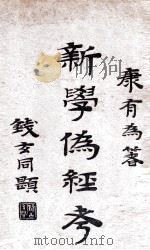 康有為著
新學偽經考
錢玄同題
www.duxiu.com